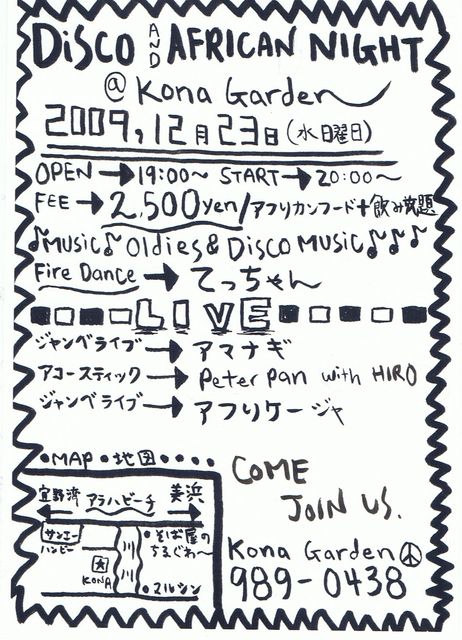 DiSCO AND AFRICAN NIGHT
@ Kona Garden
2009, 12月23日(水曜日)
OPEN → 19:00〜 START → 20:00〜
FEE → 2,500yen/アフリカンフード+飲み放題
♪MUSiC♪ Oldies & Disco MUSiC♪♪♪
Fire Dance → てっちゃん
LIVE
ジャンベライブ → アマナギ
アコースティック → Peter Pan with HIRO
ジャンベライブ → アフリケージャ
•MAP •地図••••
宜野湾 アラハビーチ 美浜
サンエー
ハンビー
•そば屋の
ちるぐわ〜
KONA
•マルシン
COME
JOIN US.
Kona Garden
989-0438